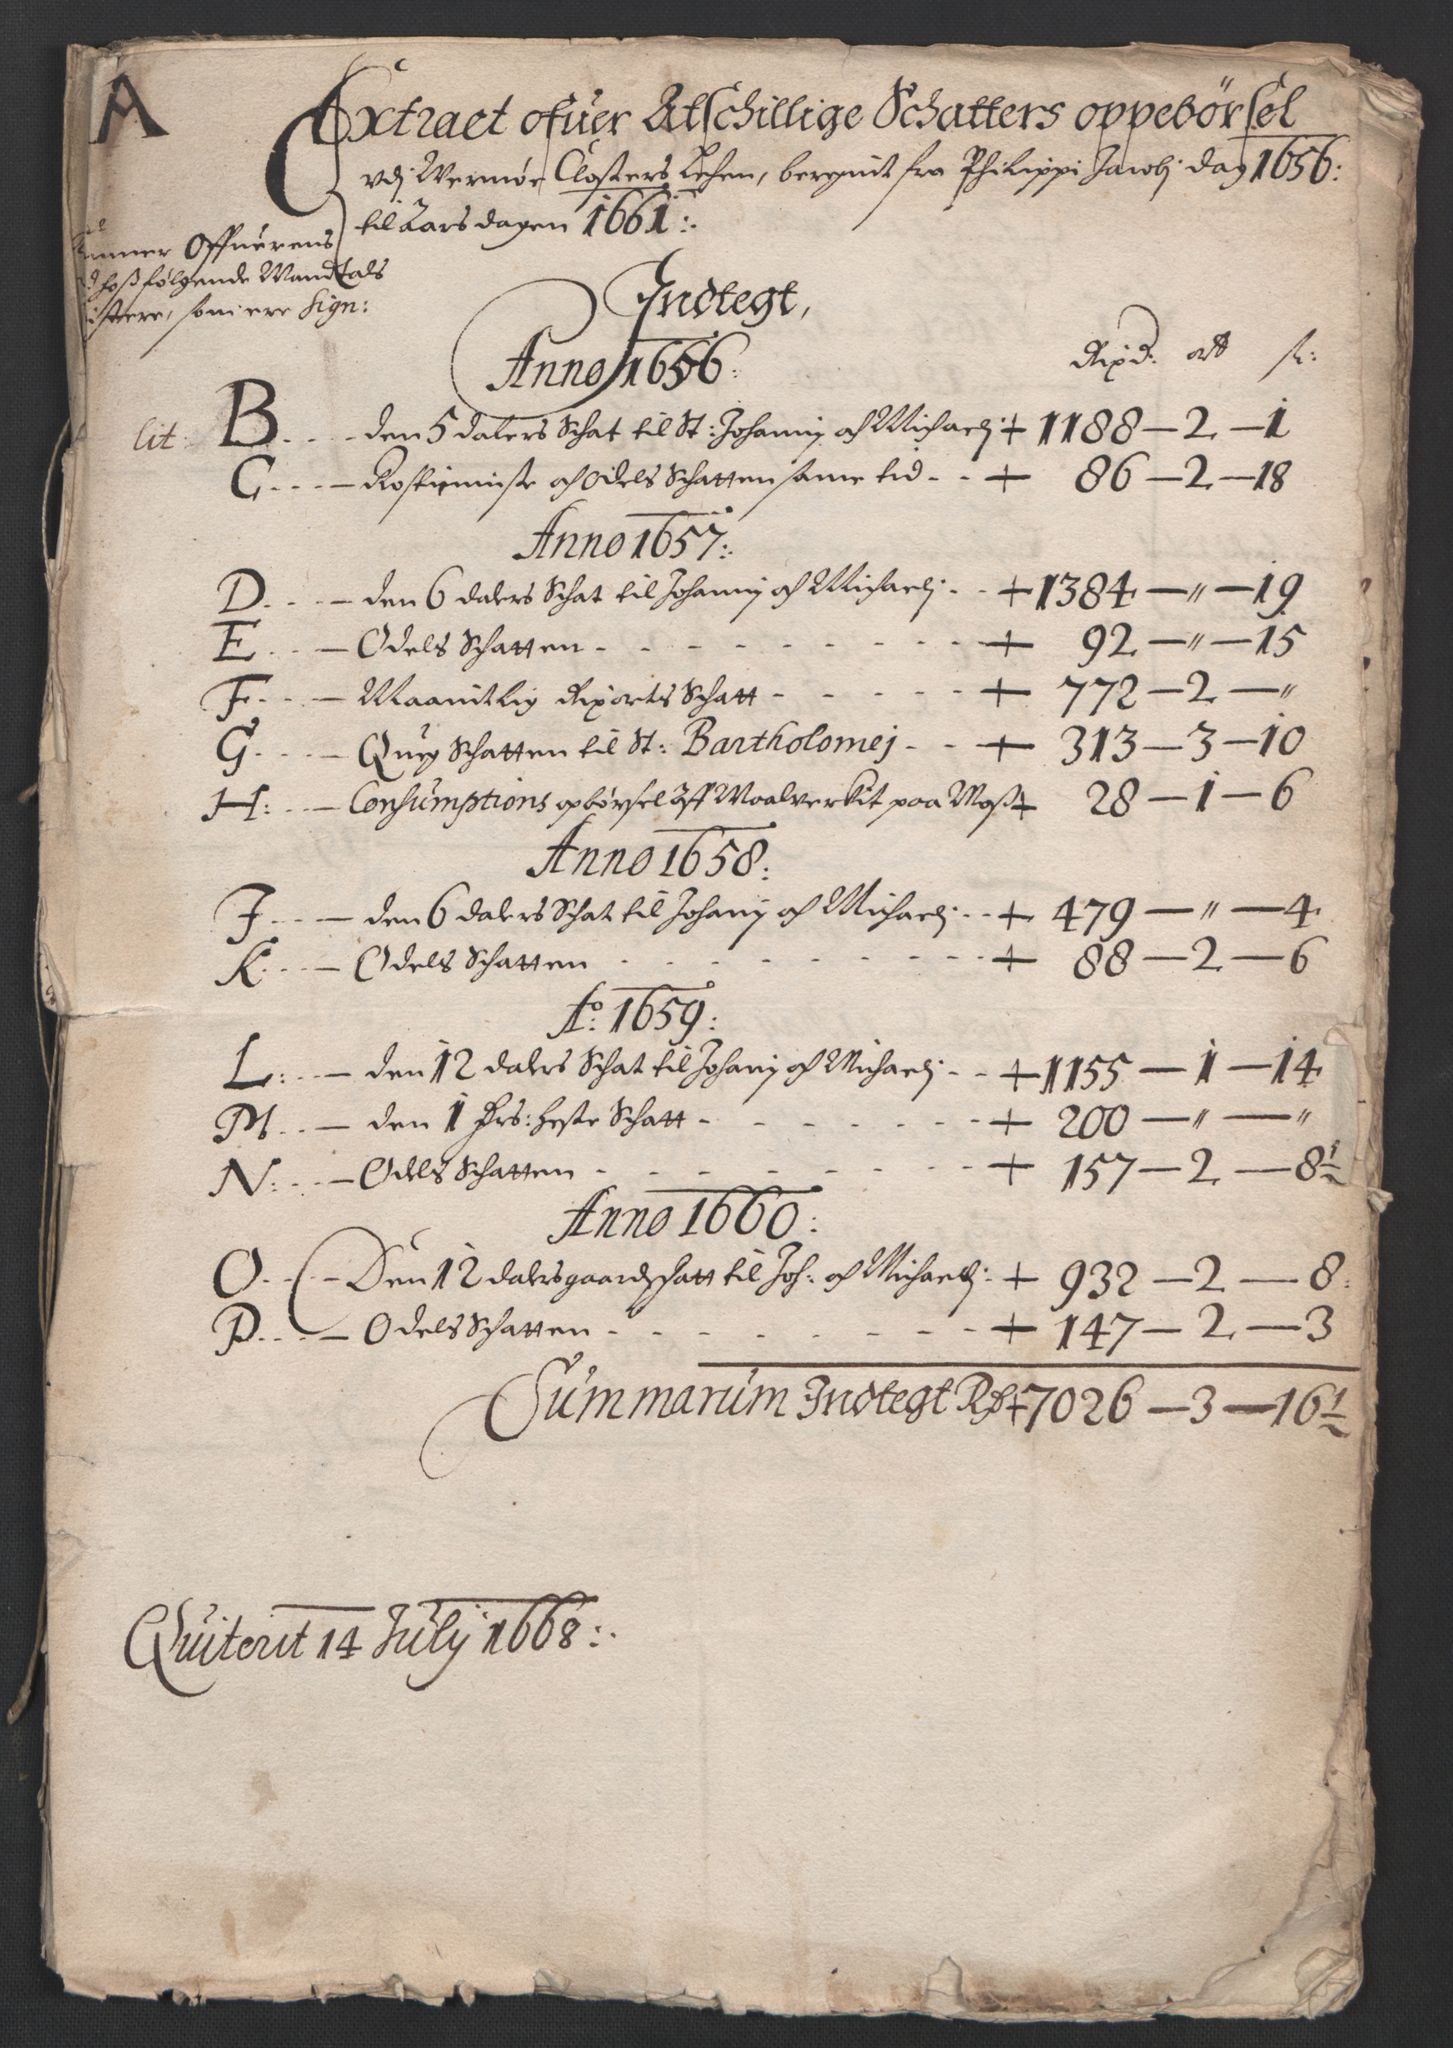 A
Extract ofuer Atschillige Schatters oppebörsel
vdj Wernøe Closters Lehen, beregnit fra Philippi Jacobj dag 1656:
til Aarsdagen 1661:
Offuerens
hoß følgende Mandtals
som ere sign:
Indtegt,
Anno 1656: Rixd: ortt sk:
lit: B. - - - den 5 dalers Schat til St: Johannij oc Michaelj + 1188 — 2 — 1
C. - - - Rostienniste oc Odels Schatten samme tid - - + 86 — 2 — 18
Anno 1657:
D. - - - den 6 dalers Schat til Johannij oc Michaelj - - + 1384 — " — 19
E. - - - Odels Schatten - - - - - - - - + 92 — " — 15
F. - - - Maanitlig Rixorts Schatt - - - - - + 772 — 2 — "
G. - - - Queg Schatten til St: Bartholomej - - - + 313 — 3 — 10
H: - - - Consumptions opbörsel aff Maalverkit paa Moß + 28 — 1 — 6
Anno 1658:
J. - - - den 6 dalers Schat til Johanij oc Michaelj - - + 479 — " — 4
K. - - - Odels Schatten - - - - - - - - + 88 — 2 — 6
Ao: 1659:
L: - - - den 12 dalers Schat til Johanij oc Michaelj - - + 1155 — 1 — 14
M. - - - den 1 Krs: heste Schatt - - - - - - - + 200 — " — "
N: - - - Odels Schatten - - - - - - - - + 157 — 2 — 8½
Anno 1660:
O. - - - Den 12 dalers gaardschatt til Joh: oc Michaelj: + 932 — 2 — 8:
P. - - - Odels Schatten - - - - - - - - + 147 — 2 — 3
Summarum Indtegt Rd + 7026 — 3 — 16½
Quiterit 14 Julij 1668: